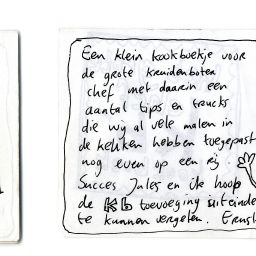 Een klein kookboekje voor
de grote kruidenboter
chef met daarin een
aantal tips en trucks
die wij al vele malen in
de keuken hebben toegepast
nog even op een rij.
Succes Jules en ik hoop
de KB toevoeging uiteinde
te kunnen vergeten. Ernst